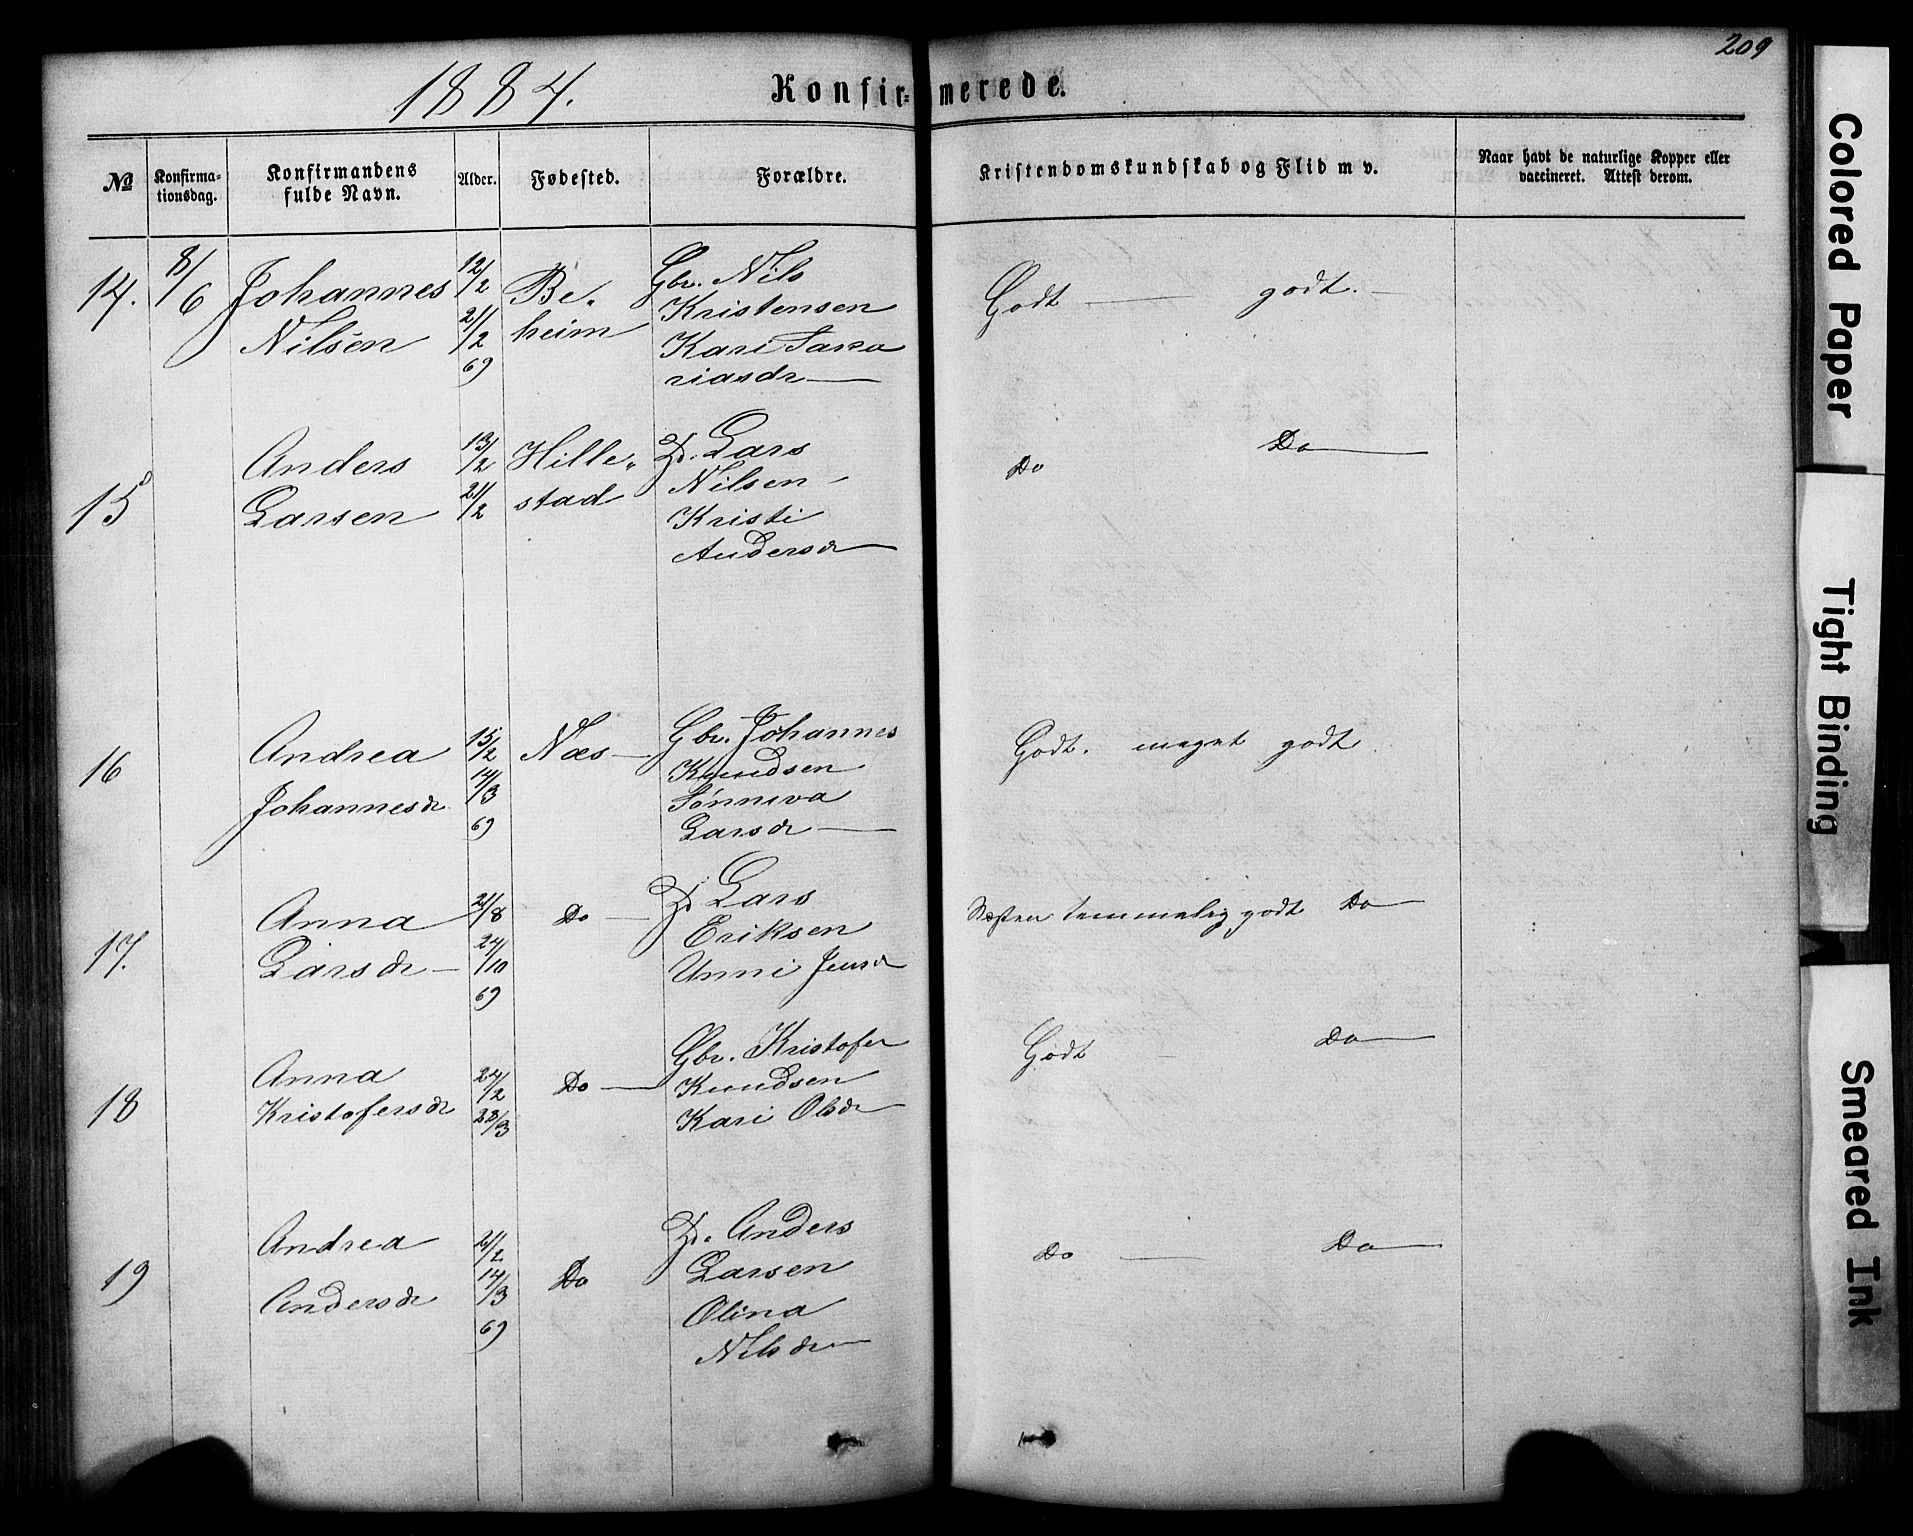 209
1884.
Konfir=merede.
No
Konfirma-
tionsdag.
Konfirmandens
fulde Navn.
Alder.
Fødested.
Forældre.
Kristendomskundskab og Flid m v.
Naar havt de naturlige Kopper eller
vaccineret. Attest derom.
14. 8/6 Johannes Nilsen
12/2
21/2
69
Be„
heim
Gbr. Nils
Kristensen
Kari Sakka
riasdr
Godt — godt. —
15
Anders
Larsen
13/2
21/2
Hille„
stad
Do. Lars
Nilsen
Kristi
Andersdr
Do Do
16
Andrea
Johannesdr
15/2
14/3
69
Næs
Gbr. Johannes
Knudsen
Sønneva
Larsdr
Godt. meget godt.
17.
Anna
Larsdr
21/8
24/10
69
Do
Do. Lars
Eriksen
Unni Jensdr
Næsten temmelig godt Do
18
Anna
Kristofersdr
24/2
28/3
Do
Gbr. Kristofer
Knudsen
Kari Olsdr
Godt Do
19
Andrea
Andersdr
21/2
14/3
69
Do
Do. Anders
Larsen
Olina
Nilsdr
Do — Do
Colored Paper
Tight Binding
Smeared Ink